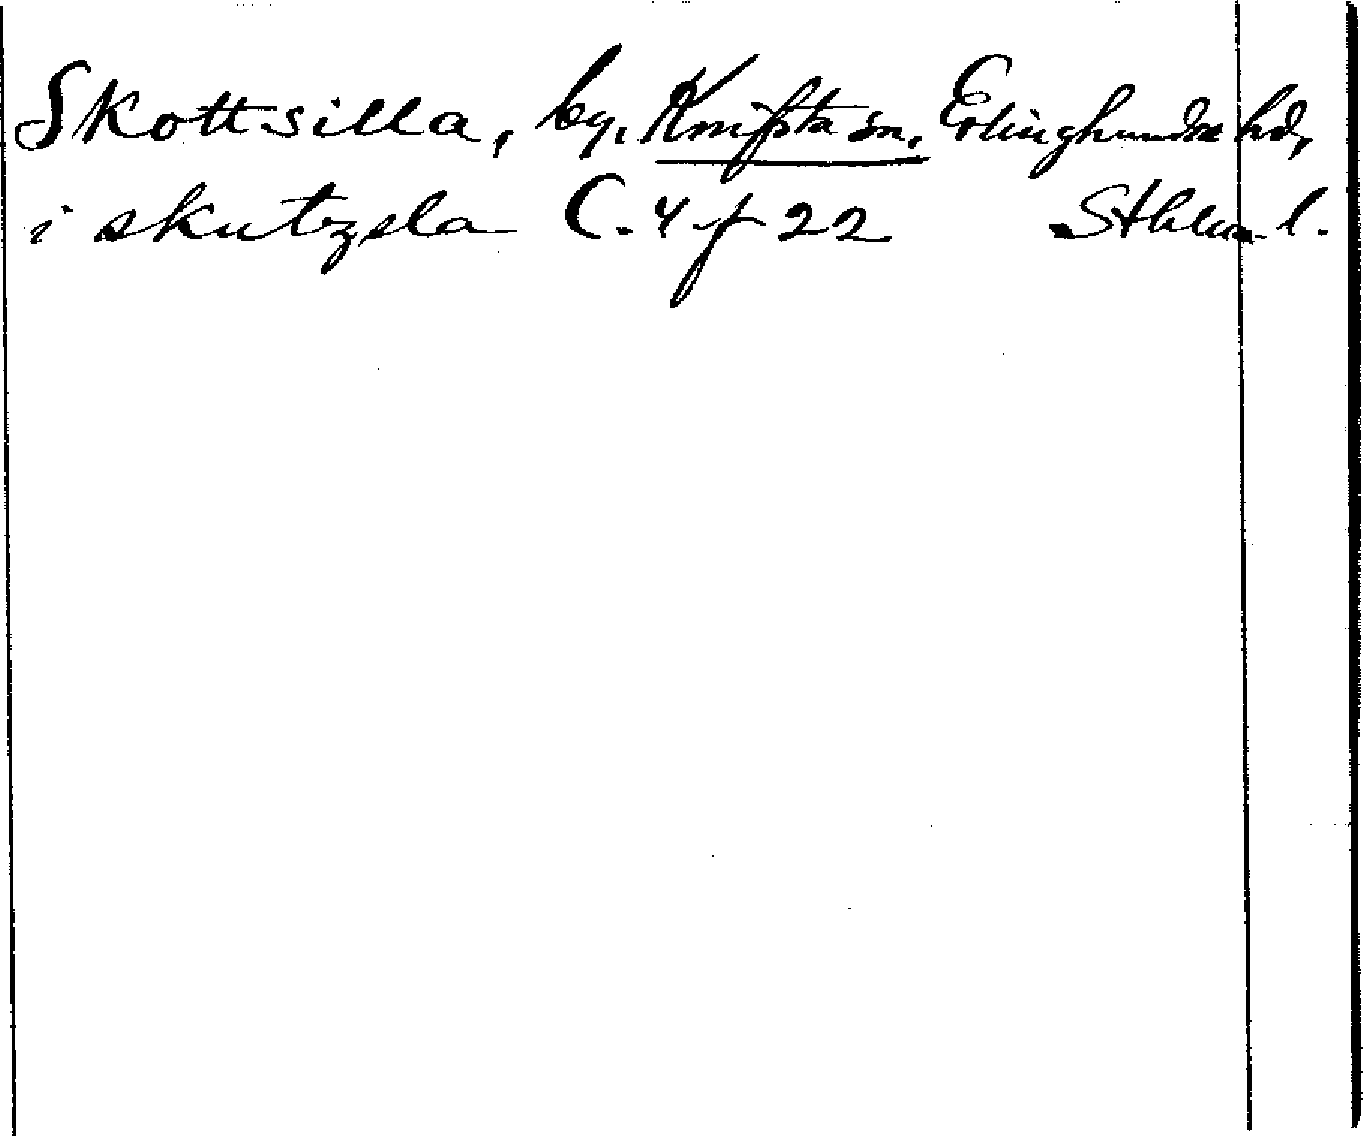 Skottsilla, by, Knifsta sn, Erlinghundra hd,
i skutzsla C. 4 f 22 Sthlms l.